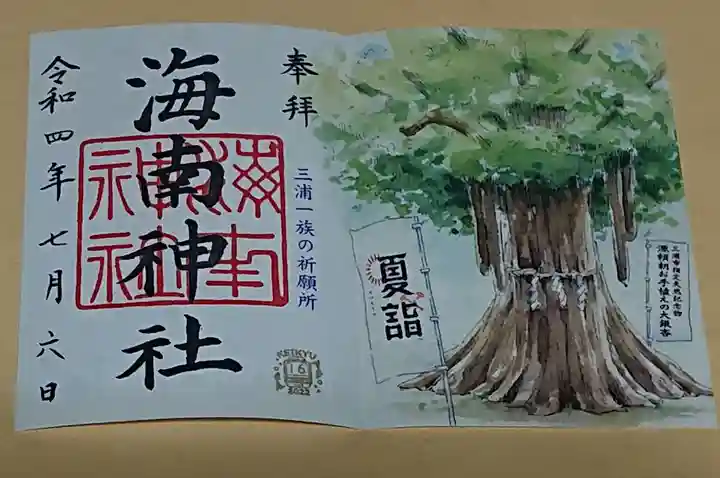 奉拝
三浦一族の祈願所
海南神社
海南神社
令和四年七月六日
KEIKYU
16
2022
夏詣
三浦市指定天然記念物
源頼朝お手植えの大銀杏